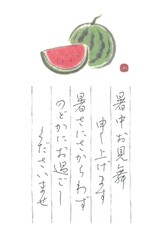 暑中お見舞
申し上げます
暑さにさからわず
のどかにお過ごし
くださいませ